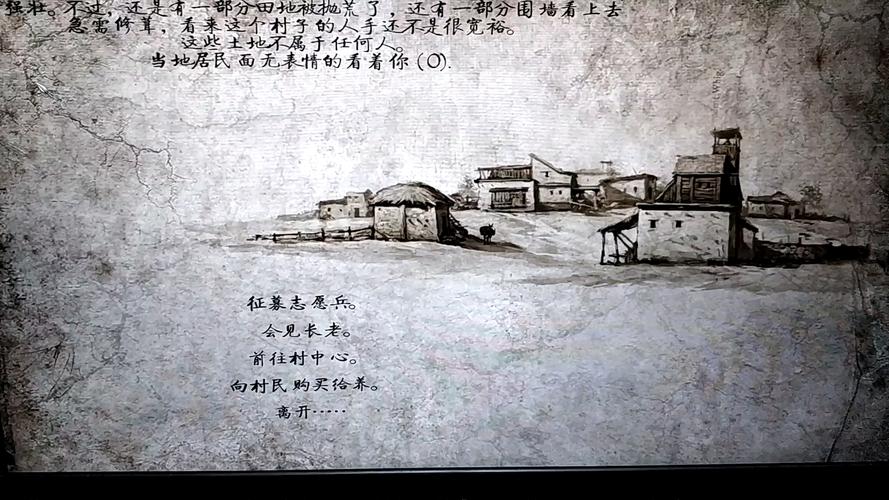 强壮。不过，还是有一部分田地被抛荒了，还有一部分围墙看上去
急需修葺，看来这个村子的人手还不是很宽裕。
这些土地不属于任何人。
当地居民面无表情的看着你(0).
征募志愿兵。
会见长老。
前往村中心。
向村民购买给养。
离开·····